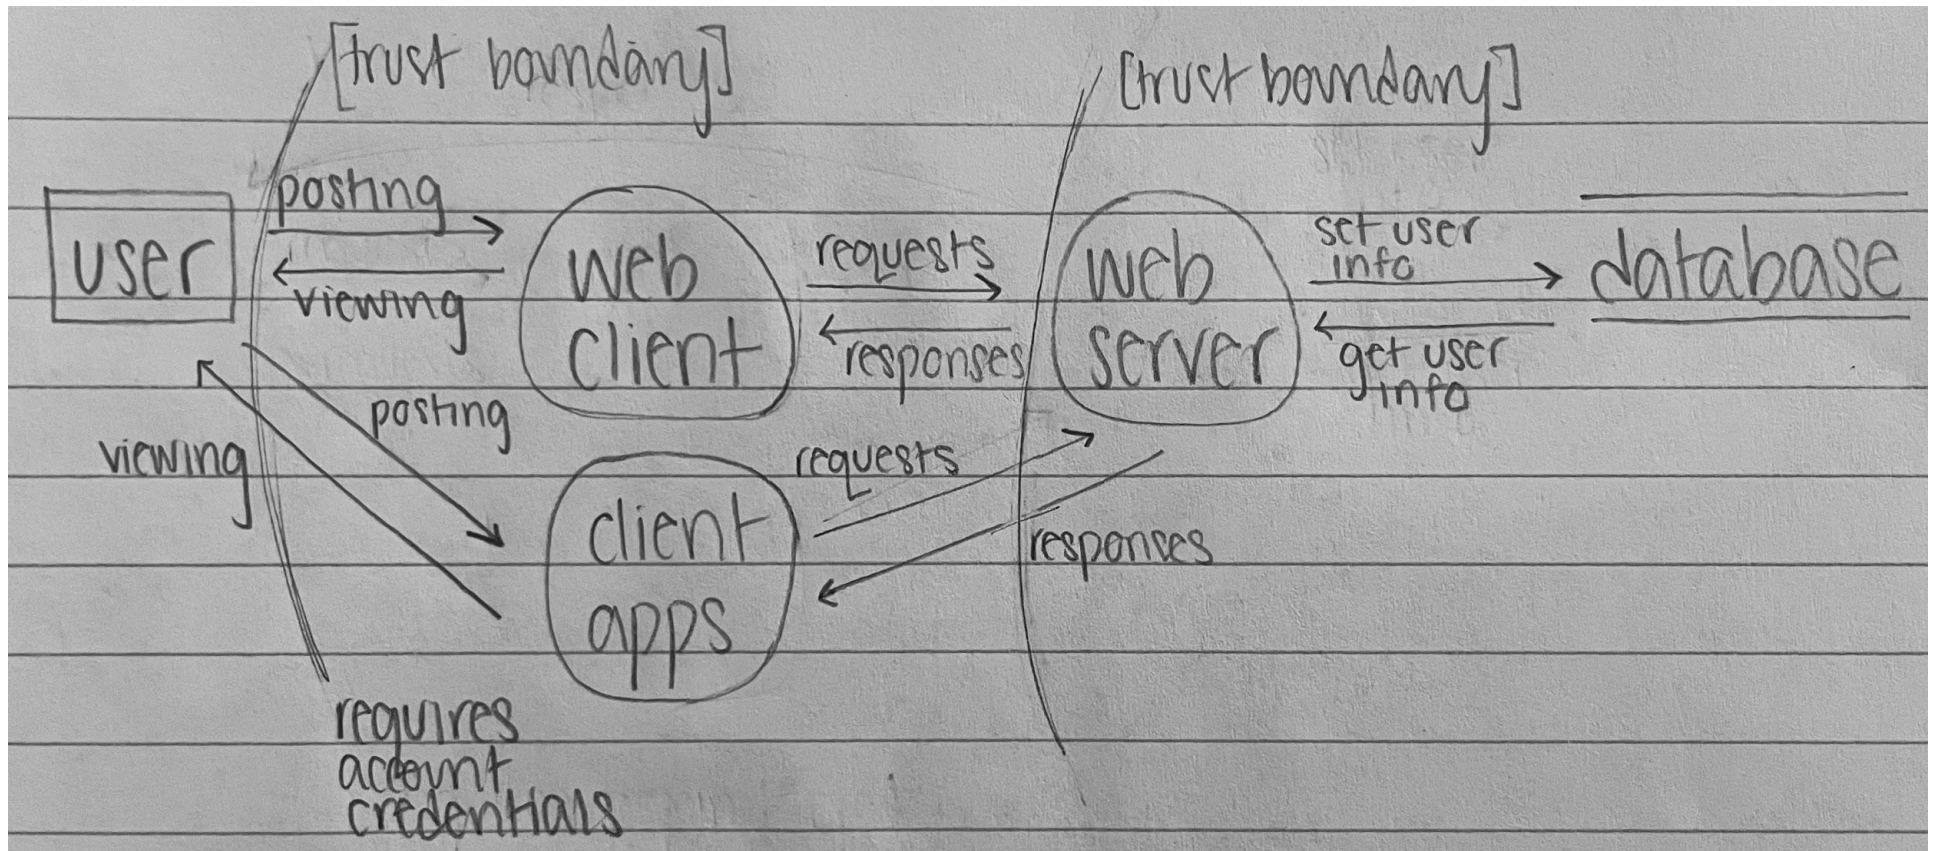 [trust boundary]
[trust boundary]
posting
user
viewing
web
client
requests
responses
web
server
set user
info
get user
info
database
posting
viewing
client
apps
requests
responses
requires
account
credentials